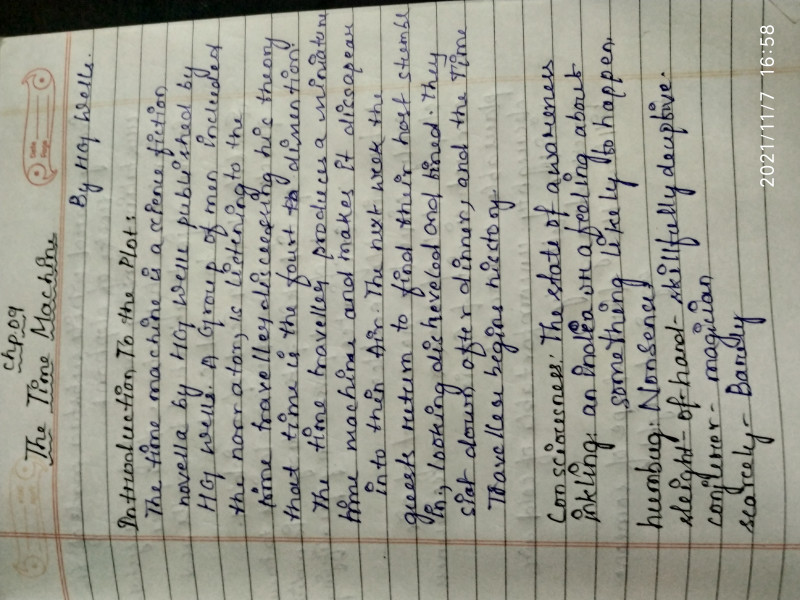 chp.09
The Time Machine
By HG Wells.
Introduction To the Plot:
The time machine is a science fiction
novella by HG Wells published by
HG Wells. A Group of men included
the narrator, is listening to the
time traveller discussing his theory
that time is the fourt dimention
The time traveller produces a miniature
time machine and makes it disappear
into thin Air. The next week the
guests return to find their host stumble
in, looking disheveled and tired. They
sist down after dinner, and the Time
Traveller begins hisstory
Consciousness: The state of awareness
inkling: an about
something likely to happen.
humbug: Nonsence
sleight-of-hand- skillfully deceptive.
conjeror- magician
scarcely- Barely
2021/11/7 16:58